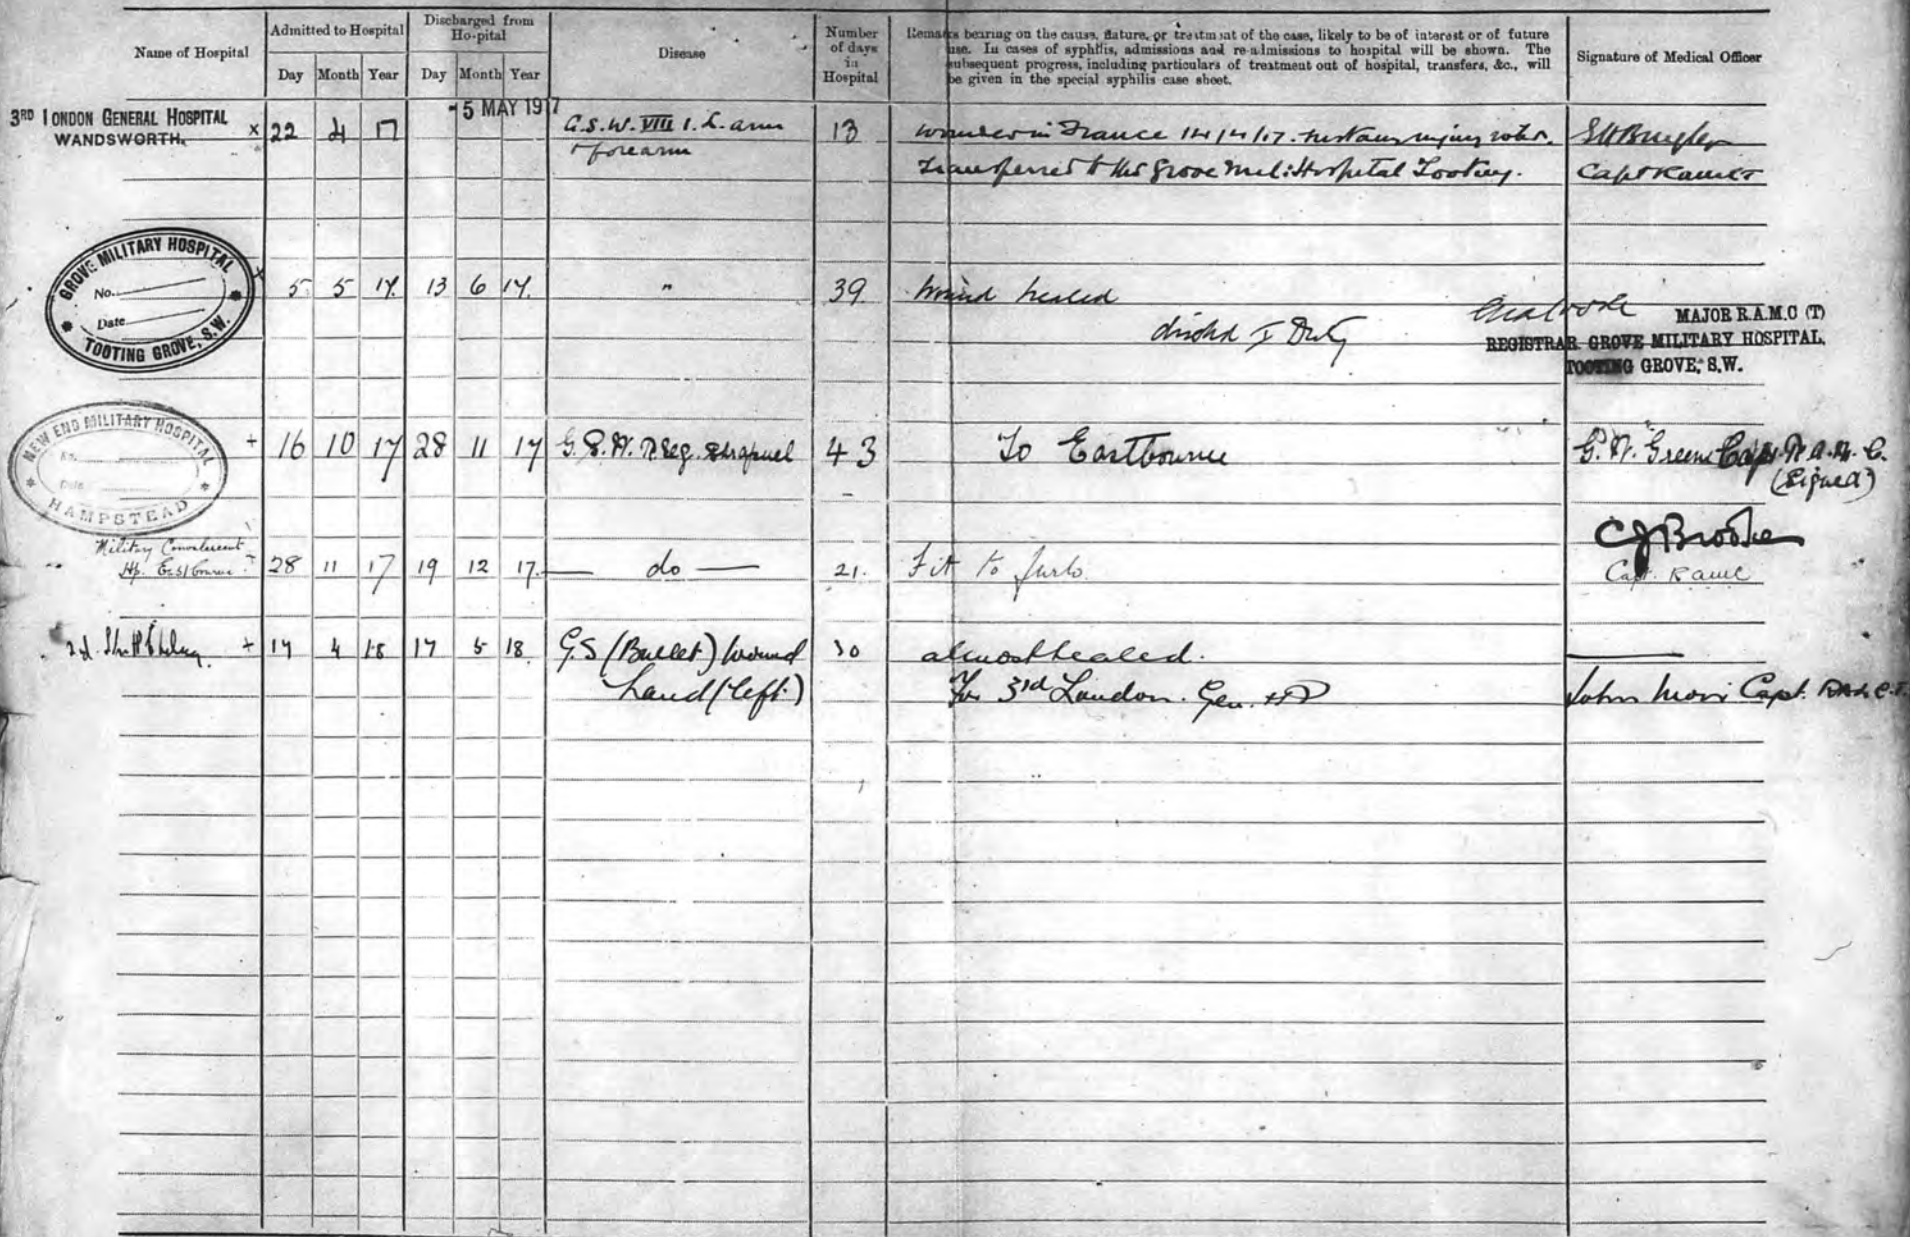 Name of Hospital
Admitted to Hospital
Discharged from Ho-pital
Disease
Number of days in Hospital
Remarks bearing on the cause, nature, or treatment of the case, likely to be of interest or of future
use. In cases of syphilis, admissions and re-admissions to hospital will be shown. The
subsequent progress, including particulars of treatment out of hospital, transfers, &c., will
be given in the special syphilis case sheet.
Signature of Medical Officer
Day Month Year Day Month Year
3RD LONDON GENERAL HOSPITAL
WANDSWORTH.
x 22 4 17
-5 MAY 1917
G.S.W. VIII 1. L. arm
+ forearm
13
wounded in France 14/4/17.
Transferred to the Grove Mil: Hospital Tooting.
Capt
GROVE MILITARY HOSPITAL
No.
Date
TOOTING GROVE, S.W.
+ 5 5 17. 13 6 17. " 39 Wound healed
to Duty
MAJOR R.A.M.C (T)
REGISTRAR GROVE MILITARY HOSPITAL,
TOOTING GROVE, S.W.
NEW END MILITARY HOSPITAL
No.
Date
HAMPSTEAD
+ 16 10 17 28 11 17 G.S.W. Shrapnel 43 To Eastbourne G.W. Greene Capt. R.A.M.C.
(Signed)
Military Convalescent
Hp. Eastbourne. + 28 11 17 19 12 17. — do — 21. Fit to furlo. C J Brooke
Capt. RAMC
+ 17 4 18 17 5 18 G.S (Bullet) wound 30 almost healed.
hand (left) For 3rd London. Gen. John Capt.